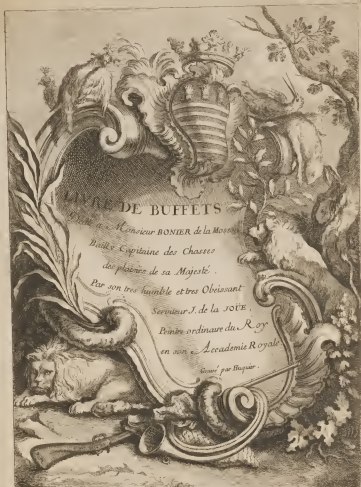 LIVRE DE BUFFETS
Dedié a Monsieur BONIER de la Mosson
Bailly Capitaine des Chasses
des plaisirs de sa Majesté.
Par son tres humble et tres Obeissant
Serviteur J. de la JOÜE,
Peintre ordinaire du Roy
en son Accademie Royale
Gravé par Huquier.